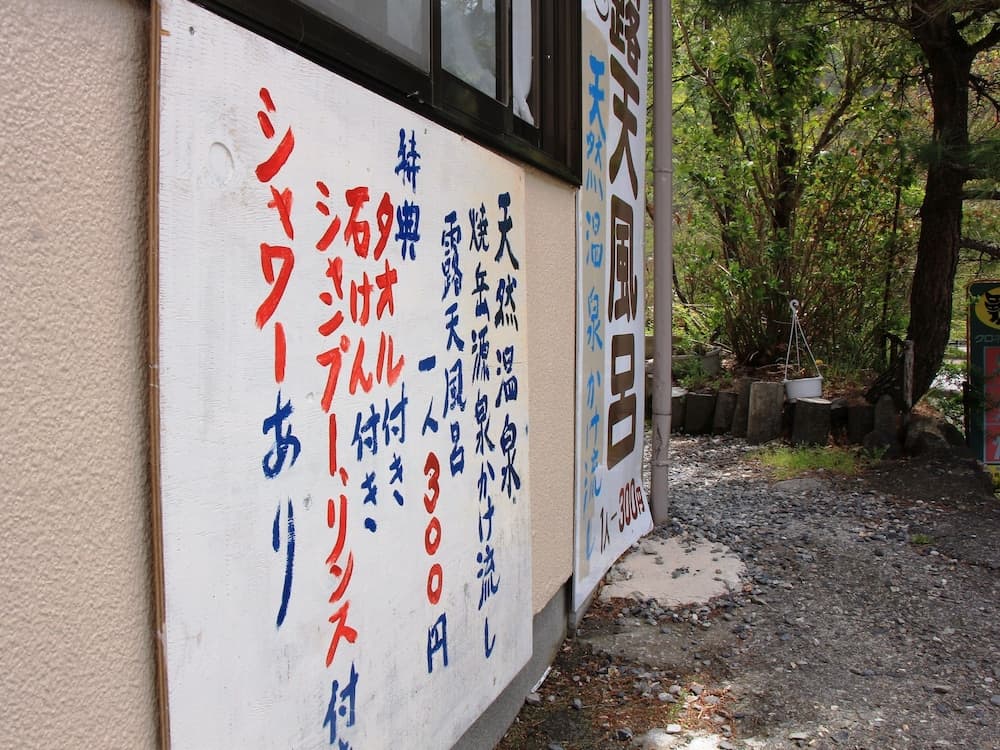 天然温泉
焼岳源泉かけ流し
露天風呂
一人300円
特典
タオル付き
石けん付き
シャンプー、リンス付
シャワーあり
露天風呂
天然温泉かけ流し
1人-300円
クロ